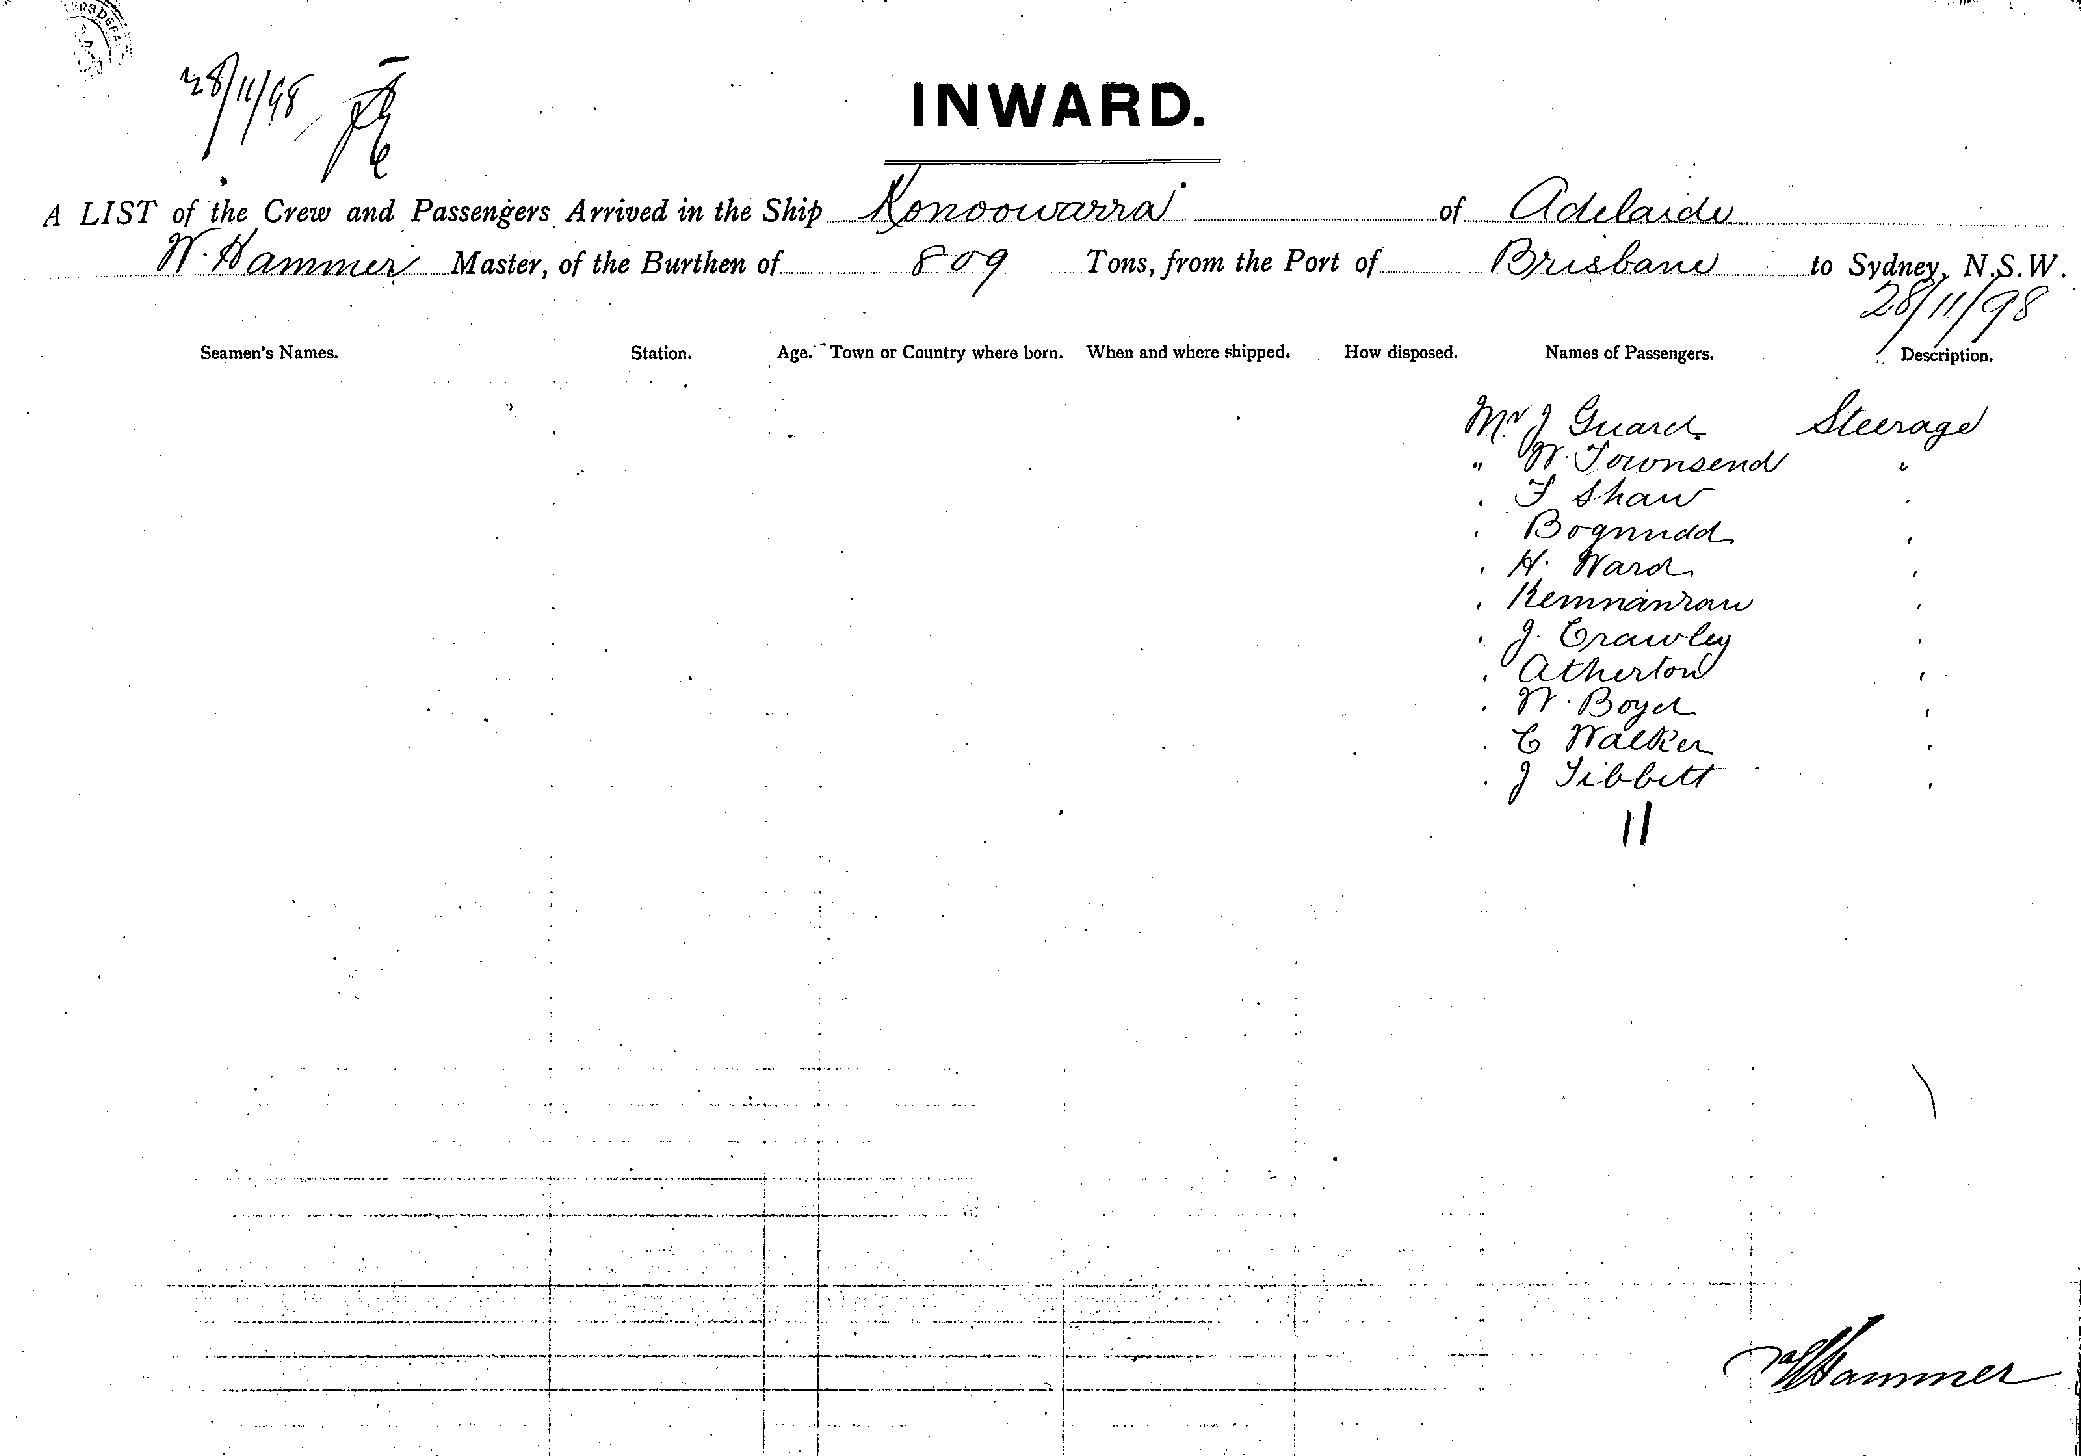 28/11/98
INWARD.
A LIST of the Crew and Passengers Arrived in the Ship Konoowarra of Adelaide
W. Hammer Master, of the Burthen of 809 Tons, from the Port of Brisbane to Sydney, N.S.W.
28/11/98
Seamen's Names. Station. Age. Town or Country where born. When and where shipped. How disposed. Names of Passengers. Description.
Mr J Guard Steerage
" W. Townsend "
. F Shaw .
. Bognudd .
. H. Ward .
. .
. J. Crawley .
. Atherton .
. W. Boyd .
. C Walker .
. J Tibbitt .
11
W Hammer